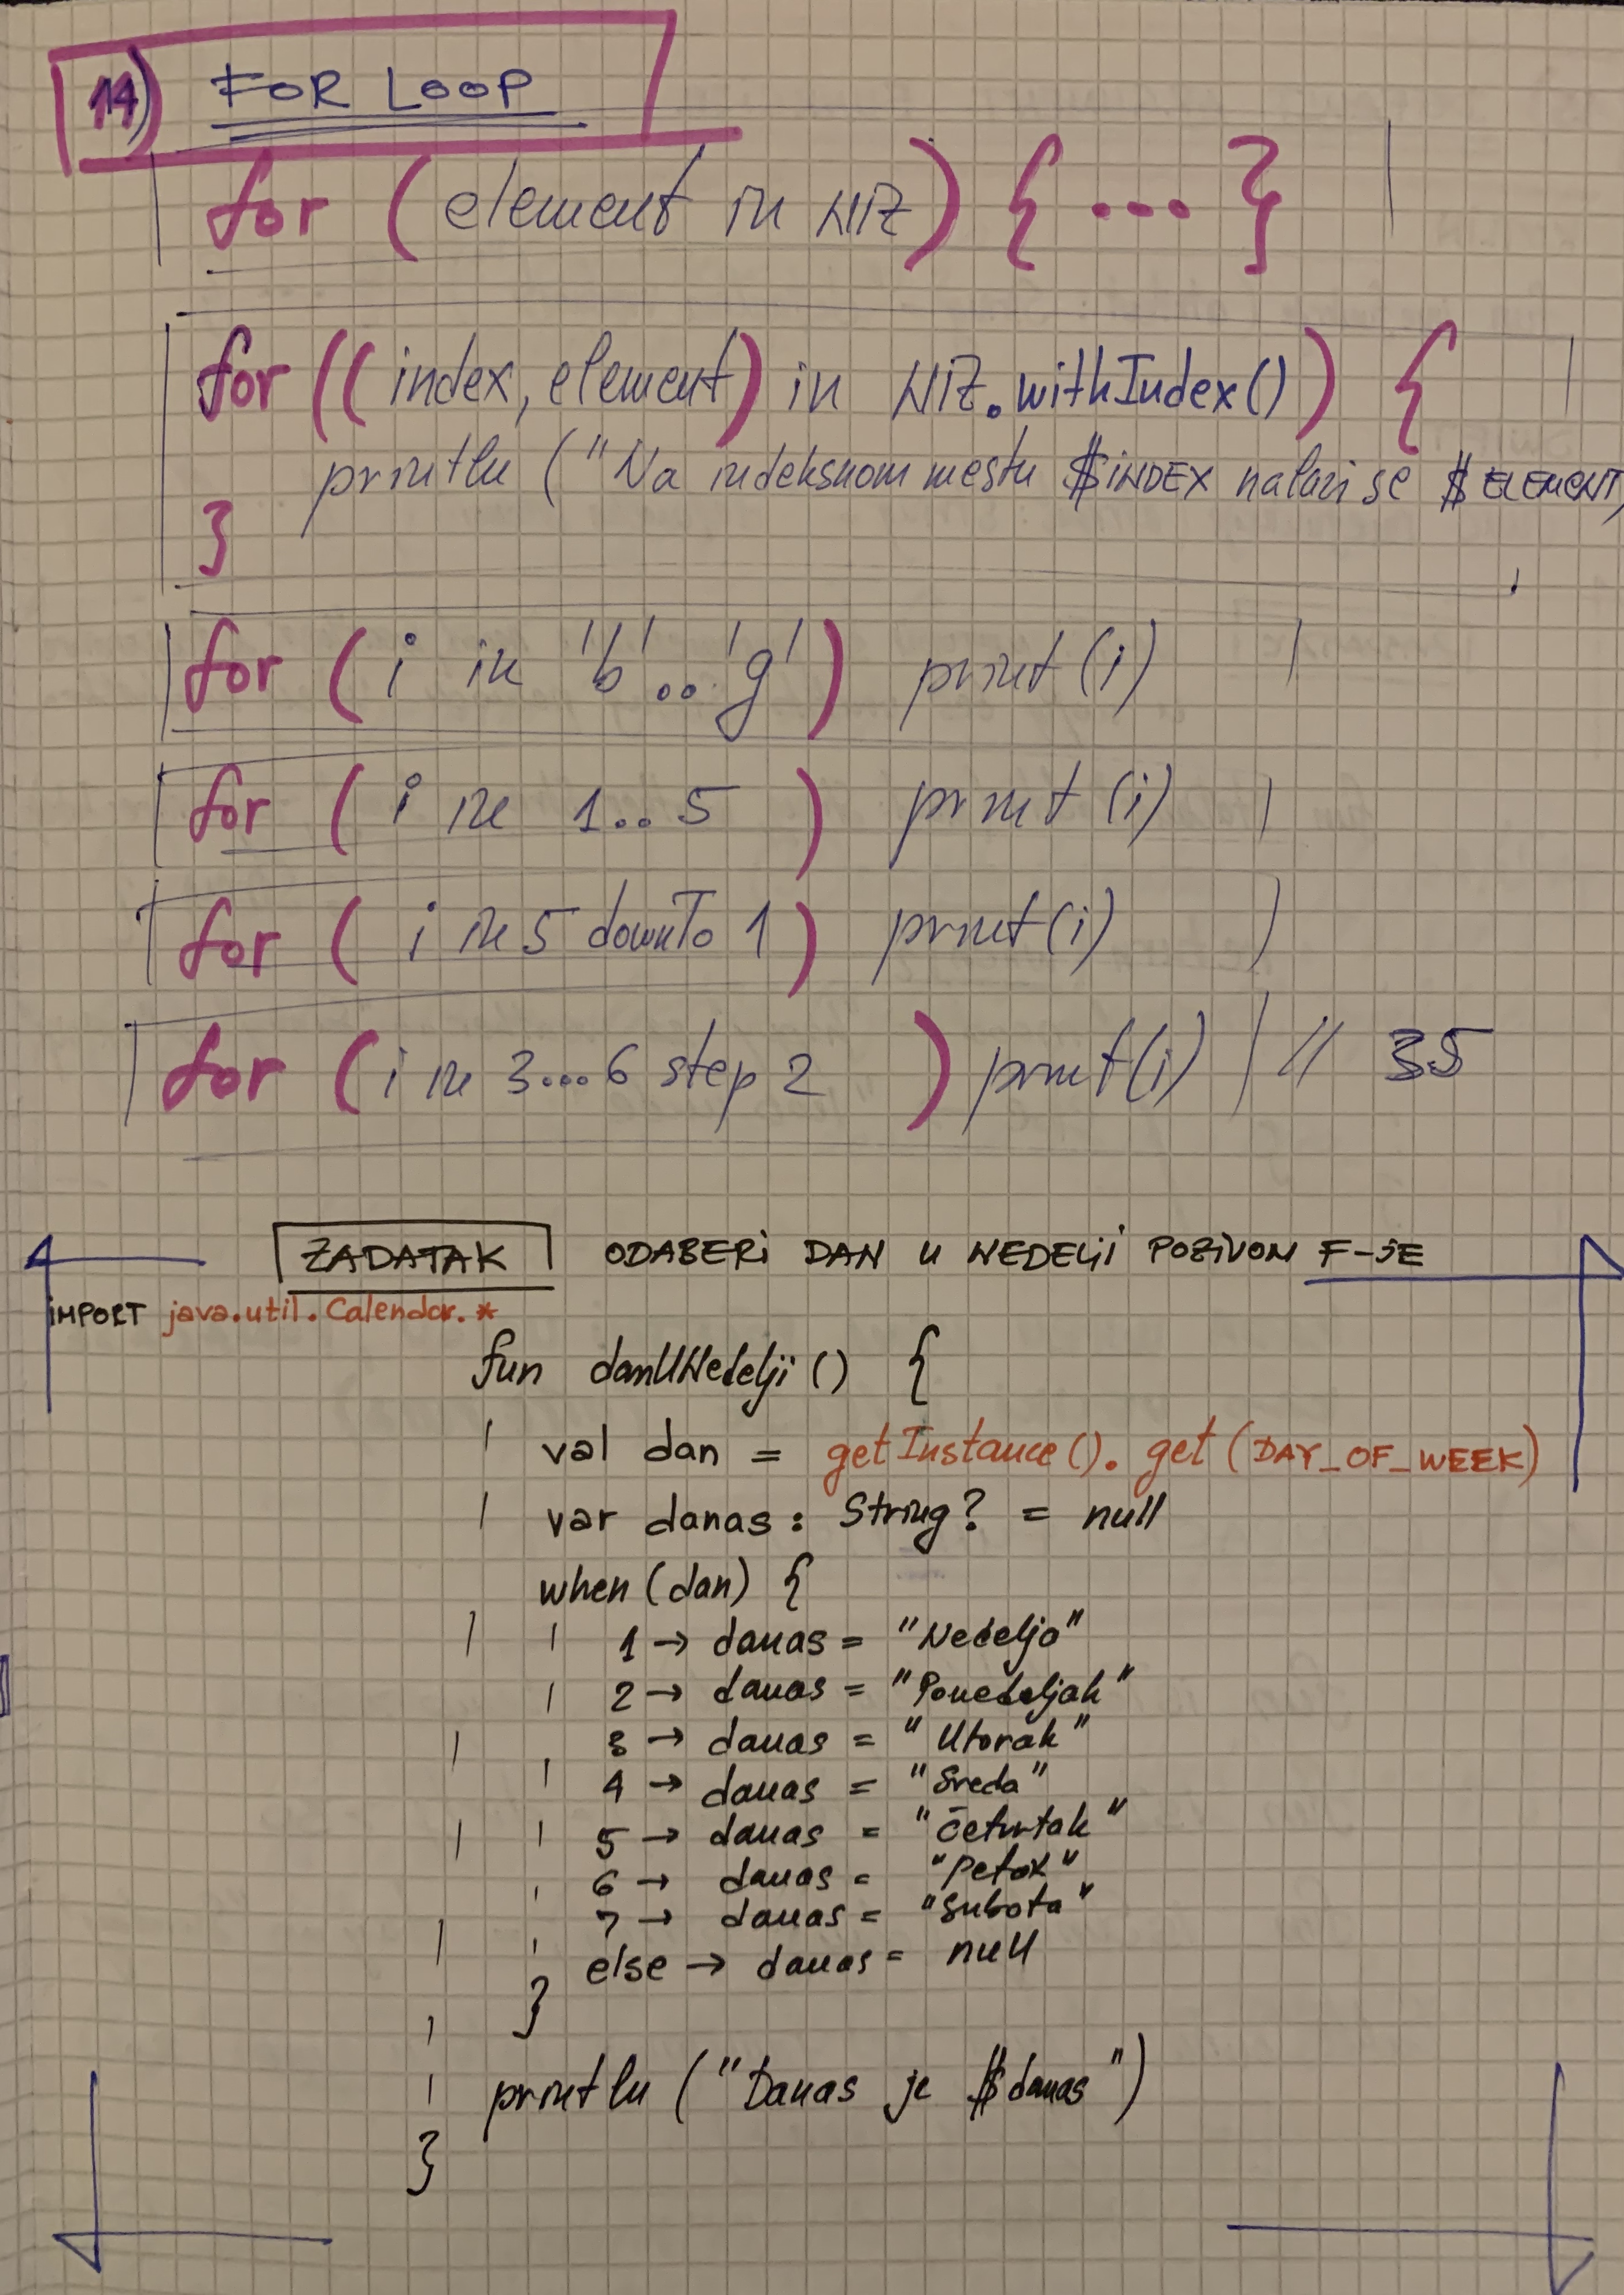 14) FOR LOOP
for (element in NIZ) { ... }
for ((index, element) in NIZ.withIndex()) {
println ("Na indeksnom mestu $INDEX nalazi se $ELEMENT)
}
for (i in 'b'..'g') print (i)
for (i in 1..5) print (i)
for (i in 5 downTo 1) print (i)
for (i in 3...6 step 2) print (i) // 35
ZADATAK ODABERI DAN U NEDELJI POZIVOM F-JE
IMPORT java.util.Calendar.*
fun danUNedelji () {
val dan = getInstance(). get (DAY_OF_WEEK)
var danas: String? = null
when (dan) {
1 → danas = "Nedelja"
2 → danas = "Ponedeljak"
3 → danas = "Utorak"
4 → danas = "Sreda"
5 → danas = "Četvrtak"
6 → danas = "Petak"
7 → danas = "Subota"
else → danas = null
}
println ("Danas je $danas")
}